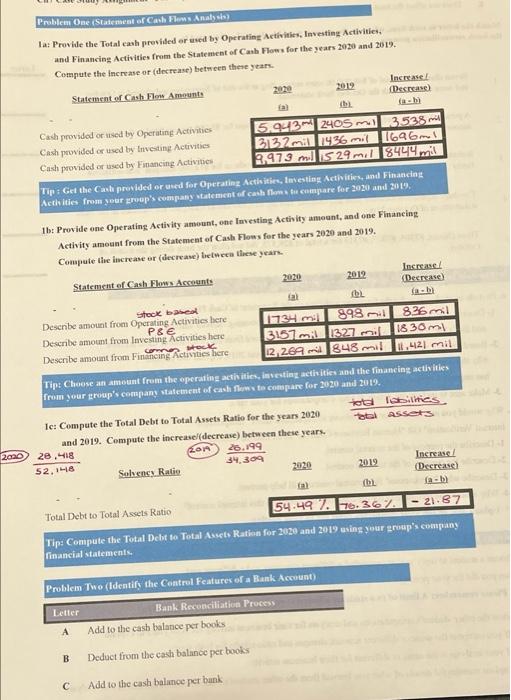 Problem One (Statement of Cash Flows Analysis)
1a: Provide the Total cash provided or used by Operating Activities, Investing Activities,
and Financing Activities from the Statement of Cash Flows for the years 2020 and 2019.
Compute the increase or (decrease) between these years.
Statement of Cash Flow Amounts 2020 2019 Increase / (Decrease)
(a) (b) (a - b)
Cash provided or used by Operating Activities 5,943mil 2405 mil 3,538 mil
Cash provided or used by Investing Activities 3132 mil 1436 mil 1696mil
Cash provided or used by Financing Activities 9,973 mil 1529 mil 8444 mil
Tip : Get the Cash provided or used for Operating Activities, Investing Activities, and Financing
Activities from your group's company statement of cash flows to compare for 2020 and 2019.
1b: Provide one Operating Activity amount, one Investing Activity amount, and one Financing
Activity amount from the Statement of Cash Flows for the years 2020 and 2019.
Compute the increase or (decrease) between these years.
Statement of Cash Flows Accounts 2020 2019 Increase / (Decrease)
(a) (b) (a - b)
stock based
Describe amount from Operating Activities here 1734 mil 898 mil 836 mil
P&E
Describe amount from Investing Activities here 3157 mil 1327 mil 1830 mil
common stock
Describe amount from Financing Activities here 12,269 mil 848 mil 11,421 mil
Tip: Choose an amount from the operating activities, investing activities and the financing activities
from your group's company statement of cash flows to compare for 2020 and 2019.
total liabilities
total assets
1c: Compute the Total Debt to Total Assets Ratio for the years 2020
and 2019. Compute the increase/(decrease) between these years.
2020 28,418 2019 26,199
52,148 34,309
Solvency Ratio 2020 2019 Increase / (Decrease)
(a) (b) (a - b)
Total Debt to Total Assets Ratio 54.49 % 76.36% - 21.87
Tip: Compute the Total Debt to Total Assets Ration for 2020 and 2019 using your group's company
financial statements.
Problem Two (Identify the Control Features of a Bank Account)
Letter Bank Reconciliation Process
A Add to the cash balance per books
B Deduct from the cash balance per books
C Add to the cash balance per bank